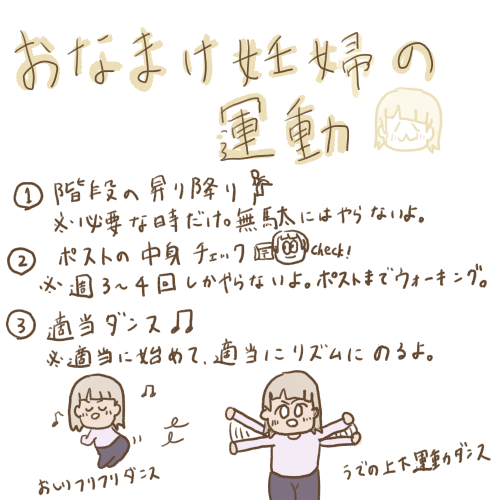 おなまけ妊婦の
運動
① 階段の昇り降り
※必要な時だけ。無駄にはやらないよ。
② ポストの中身チェック check!
※週3〜4回しかやらないよ。ポストまでウォーキング。
③ 適当ダンス♫
※適当に始めて、適当にリズムにのるよ。
おしりフリフリダンス
うでの上下運動ダンス